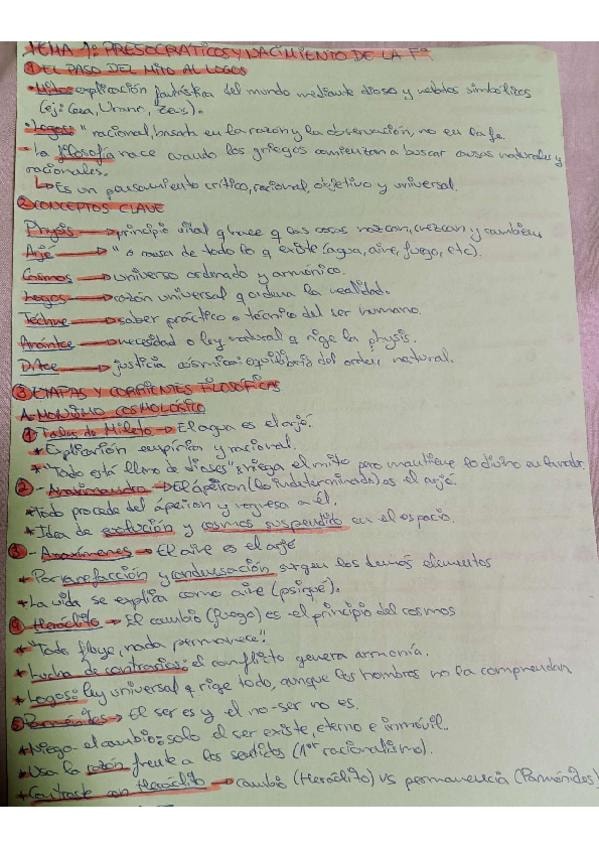 TEMA 1: PRESOCRÁTICOS Y NACIMIENTO DE LA Fª
① EL PASO DEL MITO AL LOGOS
· Mito: explicación fantástica del mundo mediante dioses y relatos simbólicos
(ej: Gea, Urano, Zeus).
· Logos: " racional, basada en la razón y la observación, no en la fe.
- La filosofía nace cuando los griegos comienzan a buscar causas naturales y
racionales.
↳ Es un pensamiento crítico, racional, objetivo y universal.
② CONCEPTOS CLAVE
Physis → principio vital q hace q las cosas nazcan, crezcan y cambien
Arjé → " o causa de todo lo q existe (agua, aire, fuego, etc).
Cosmos → universo ordenado y armónico.
Logos → razón universal q ordena la realidad.
Téchne → saber práctico o técnico del ser humano.
Anánke → necesidad o ley natural q rige la physis.
→ justicia cósmica: equilibrio del orden natural.
③ ETAPAS Y CORRIENTES FILOSÓFICAS
A. MONISMO COSMOLÓGICO
① Tales de Mileto → El agua es el arjé.
* Explicación empírica y racional.
* "Todo está lleno de dioses": niega el mito pero mantiene lo divino en
② - Anaximandro → El ápeiron (lo indeterminado) es el arjé.
* Todo procede del ápeiron y regresa a él.
* Idea de evolución y cosmos suspendido en el espacio.
③ - Anaxímenes → El aire es el arjé
* Por rarefacción y condensación surgen los demás elementos
* La vida se explica como aire (psiqué).
④ Heráclito → El cambio (fuego) es el principio del cosmos
* "Todo fluye, nada permanece".
* Lucha de contrarios: el conflicto genera armonía.
* Logos: ley universal q rige todo, aunque los hombres no la comprendan
⑤ Parménides → El ser es y el no-ser no es.
* Niega el cambio: solo el ser existe, eterno e inmóvil.
* Usa la razón frente a los sentidos (1er racionalismo).
* Contraste con Heráclito → cambio (Heráclito) vs permanencia (Parménides)